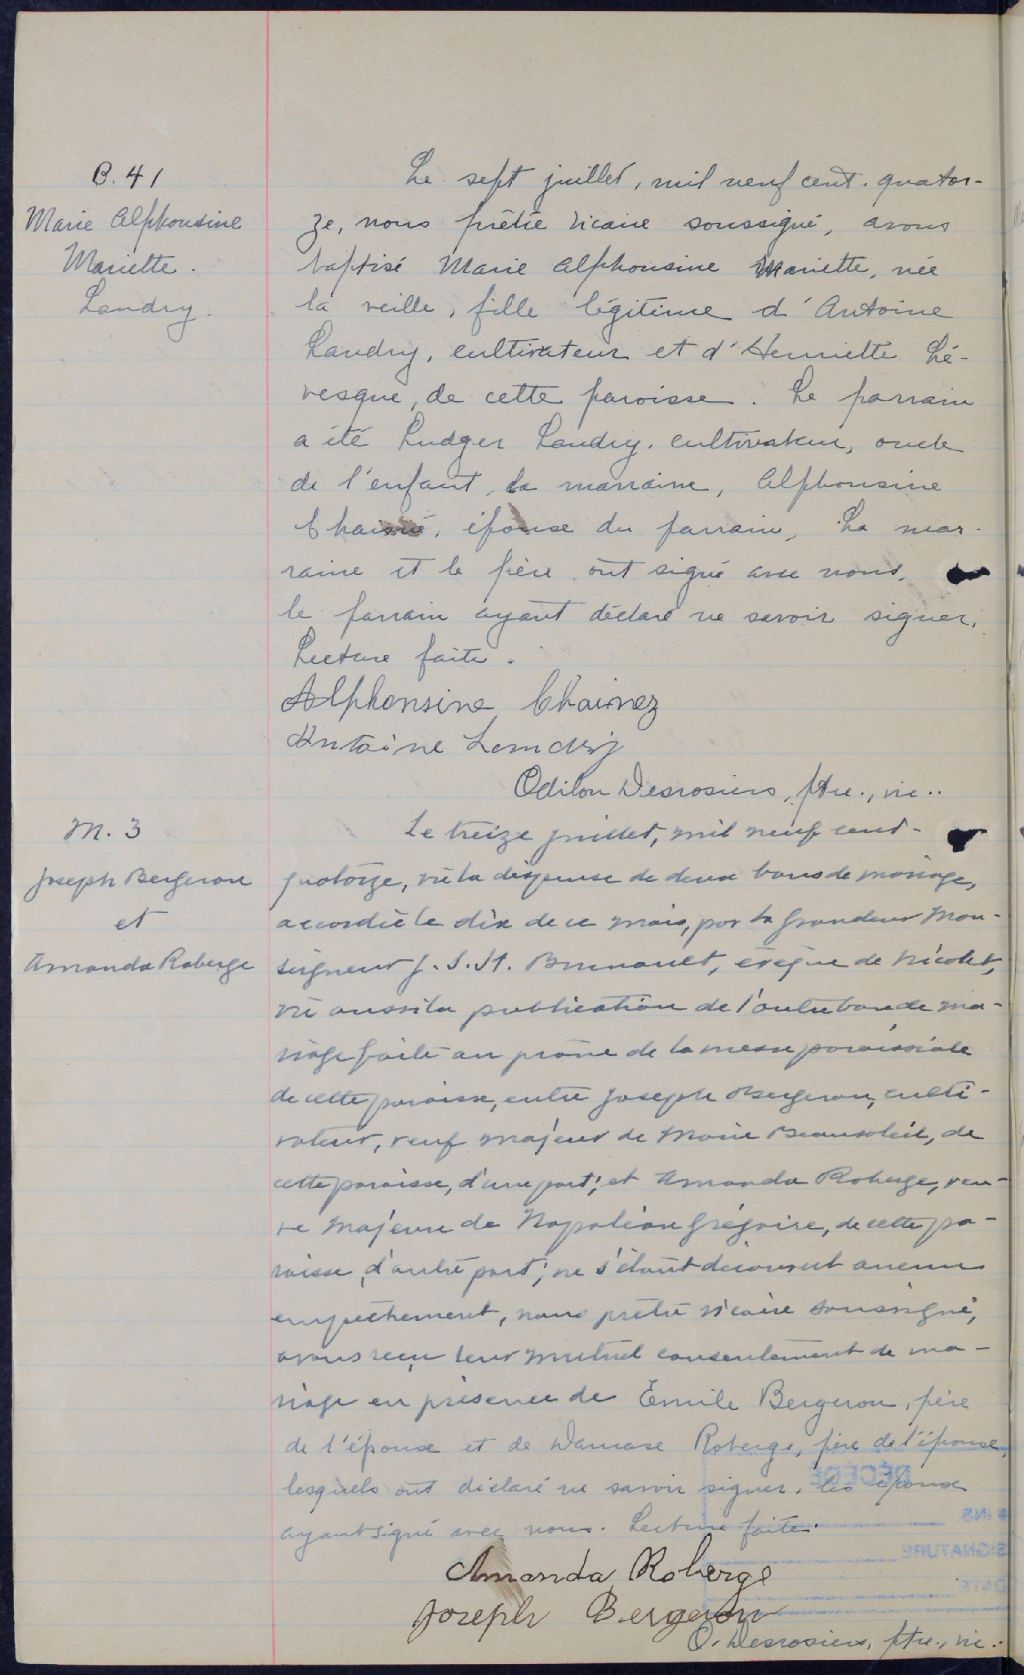 B. 41
Marie Alphonsine
Mariette.
Landry.
Le sept juillet, mil neuf cent. quator-
ze, nous prêtre vicaire soussigné, avons
baptisé Marie Alphonsine Mariette, née
la veille, fille légitime d'Antoine
Landry, cultivateur et d'Henriette Lé-
vesque, de cette paroisse. Le parrain
a été Ludger Landry, cultivateur, oncle
de l'enfant, la marraine, Alphonsine
épouse du parrain, La mar-
raine et le père ont signé avec nous,
le parrain ayant déclaré ne savoir signer.
Lecture faite.
Alphonsine Chainez
Antoine Landry
Odilon Desrosiers, ptre., vic..
M. 3
Joseph Bergeron
et
Amanda Roberge
Le treize juillet, mil neuf cent-
quatorze, vu la dispense de deux bans de mariage,
accordée le dix de ce mois, par Sa Grandeur Mon-
seigneur J. S. H. Brunault, évêque de Nicolet,
vu aussi la publication de l'autre ban de ma-
riage faite au prône de la messe paroissiale
de cette paroisse, entre Joseph Bergeron, culti-
vateur, veuf majeur de Marie Beausoleil, de
cette paroisse, d'une part; et Amanda Roberge, veu-
ve majeure de Napoléon Grégoire, de cette pa-
roisse, d'autre part; ne s'étant découvert aucun
empêchement, nous prêtre vicaire soussigné,
avons reçu leur mutuel consentement de ma-
riage en présence de Emile Bergeron, père
de l'époux et de Damase Roberge, père de l'épouse,
lesquels ont déclaré ne savoir signer, les époux
ayant signé avec nous. Lecture faite.
DÉCÉDÉ
# INS.
SIGNATURE
DATE
Amanda Roberge
Joseph Bergeron
O. Desrosiers, ptre., vic.